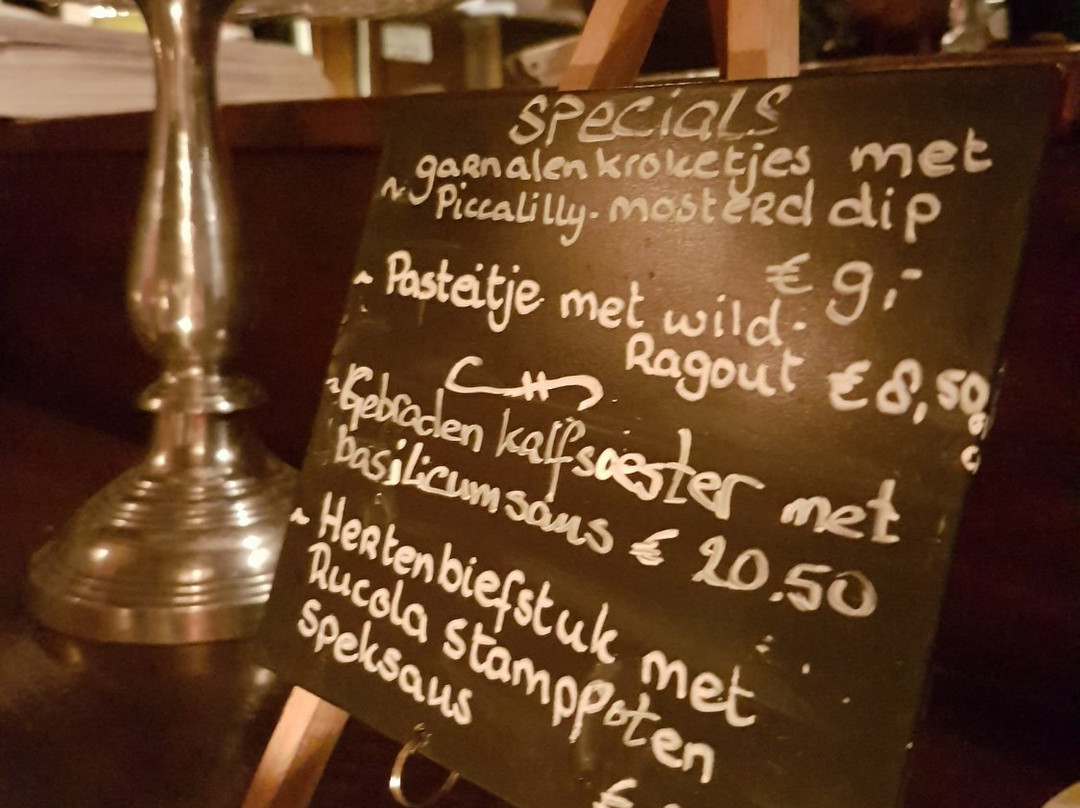 SPECIALS
~ garnalenkroketjes met
Piccalilly-mosterd dip
€ 9,-
~ Pasteitje met wild-
Ragout € 8,50
~ Gebraden kalfsoester met
basilicumsaus € 20.50
~ Hertenbiefstuk met
Rucola stamppoten
speksaus
€